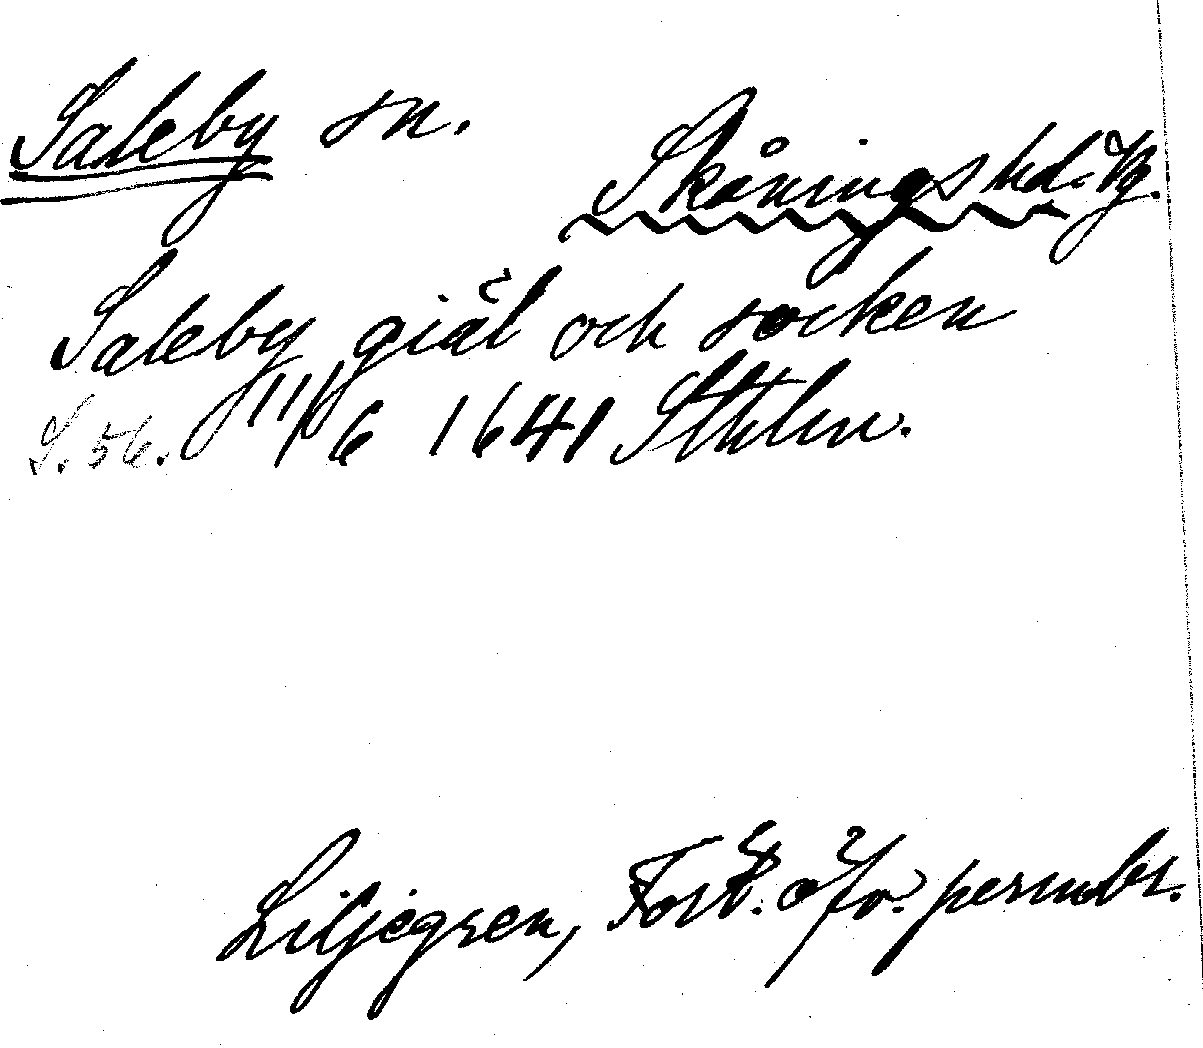 Saleby sn.
Skånings hd. Vg.
Saleby giäl och socken
S. 56. 11/6 1641 Sthlm.
Liljegren, Fört. ö. permbr.